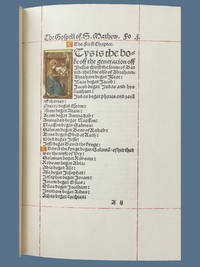 The Gospell of S. Mathew. Fo
The First Chapter.
Hys is the bo-
ke off the generacion off
Jhesus Christ the sonne of Da-
vid / the sonne also of Abraham.
Abraham begat Isaac:
Isaac begat Jacob:
Jacob begat Judas and hys
brethren:
Judas begat Phares and zaram
of thamar:
Phares begat Esrom:
Esrom begat Aram:
Aram begat Aminadab:
Aminadab begat
begat Salmon:
Salmon begat Boos of Rahab:
Boos begat Obed of Ruth:
Obed begat Jesse:
Jesse begat David the kynge:
David the kynge begat Salomon / of her that
was the wyfe of Ury:
Salomon begat Roboam:
Roboam begat Abia:
Abia begat Asa:
Asa begat Josaphat:
Josaphat begat Joram:
Joram begat Osias:
Osias begat Joatham:
Joatham begat Achas:
Achas begat Ezechias:
A